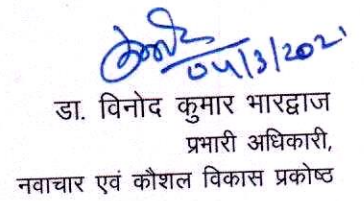 04/3/2021
डा. विनोद कुमार भारद्वाज
प्रभारी अधिकारी,
नवाचार एवं कौशल विकास प्रकोष्ठ